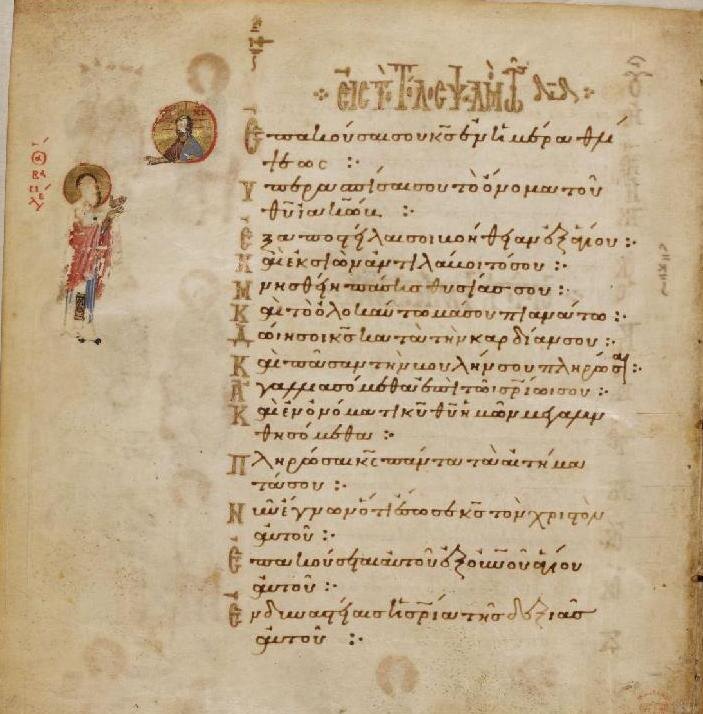 ΕἸC ΤῸ ΤΕΛΟC ΨΑΛΜῸC
Ἐπακούσαι σου κ̅ς̅ ἐν ἡμέρα θλί
ψεως :·
Ὑπερασπίσαι σου τὸ ὄνομα τοῦ
θ̅υ̅ ἰακώβ :·
Ἐξαποστείλαι σοι βοήθειαν ἐξ ἁγίου :·
Καὶ ἐκ σιὼν ἀντιλάβοιτό σου :·
Μνησθείη πάσης θυσίας σου :·
Καὶ τὸ ὁλοκαύτωμά σου πιανάτω :·
Δώη σοι κ̅ς̅ κατὰ τὴν καρδίαν σου :·
Καὶ πᾶσαν τὴν βουλήν σου πληρώσαι :·
Ἀγαλλιασόμεθα ἐπὶ τῶ σ̅ρ̅ί̅ω̅ σου :·
Καὶ ἐν ὀνόματι κ̅υ̅ θ̅υ̅ ἡμῶν μεγαλυν
θησόμεθα :·
Πληρώσαι κ̅ς̅ πάντα τὰ αἰτήμα
τά σου :·
Νῦν ἔγνων ὅτι ἔσωσε κ̅ς̅ τὸν χριστὸν
αὐτοῦ :·
Ἐπακούσεται αὐτοῦ ἐξ ο̅υ̅ν̅ο̅υ̅ ἁγίου
αὐτοῦ :·
Ἐν δυναστείαις ἡ σ̅ρ̅ί̅α̅ τῆς δεξιᾶς
αὐτοῦ :·